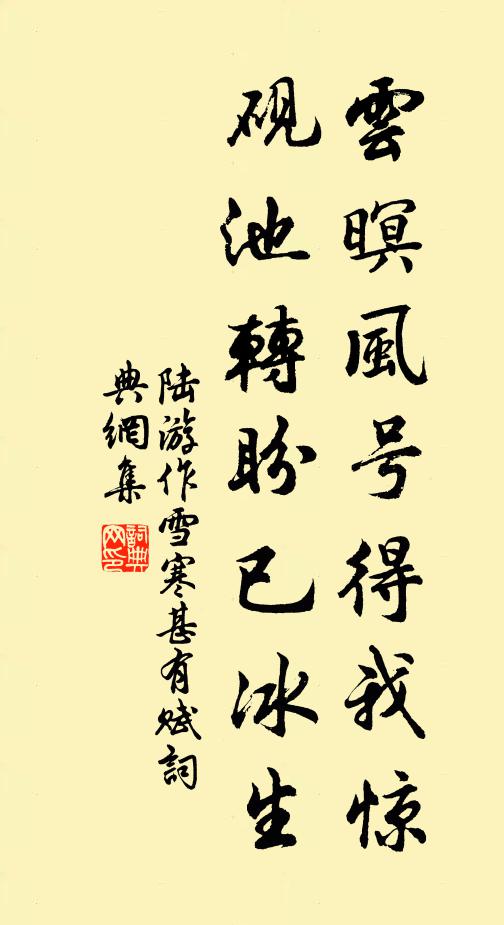 雲暝風号得我惊
硯池轉盼已冰生
陆游作雪寒甚有赋詞
典網集
詞典网印